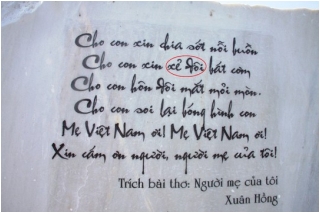 Cho con xin chia sớt nỗi buồn
Cho con xin xẻ đôi bát cơm
Cho con hôn đôi mắt mỏi mòn.
Cho con soi lại bóng hình con
Mẹ Việt Nam ơi! Mẹ Việt Nam ơi!
Xin cám ơn người, người mẹ của tôi!
Trích bài thơ: Người mẹ của tôi
Xuân Hồng